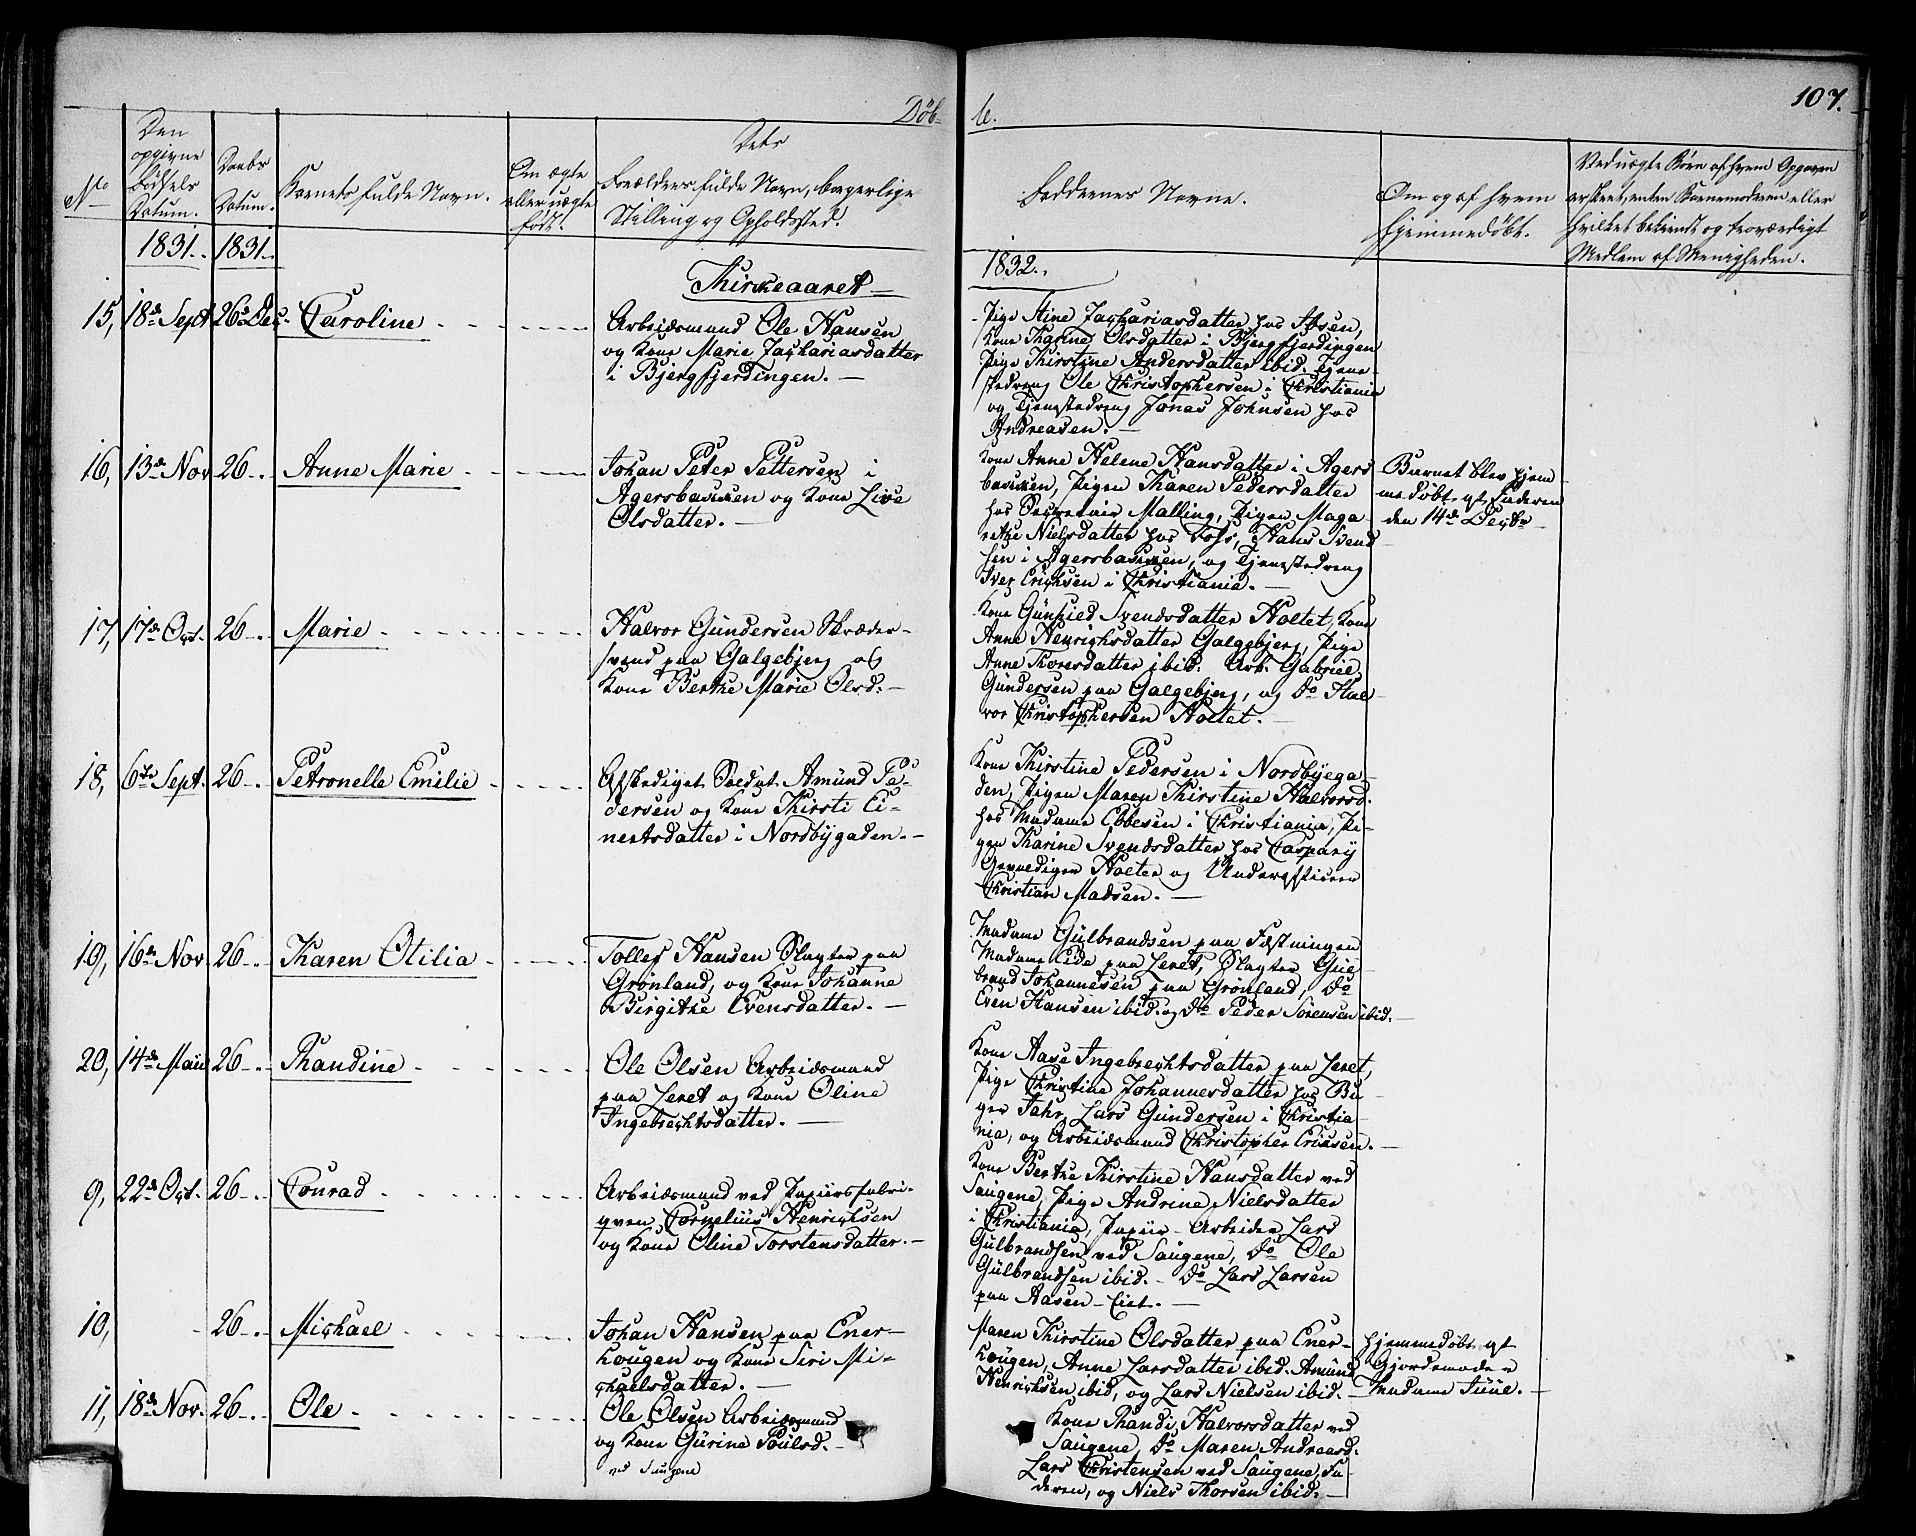 Døb-
te.
107.
No
Den
opgivne
Fødsels
Datum.
Daabs
Datum.
Barnets fulde Navn.
Om ægte
eller uægte
født.
Dets
Forældres fulde Navn, borgerlige
Stilling og Opholdssted.
Faddernes Navne.
Om og af hvem
hjemmedøbt.
Ved uægte Børn af hvem Opgaven
er skeet, enten Barnemoderen eller
hvilket bekjendt og troværdigt
Medlem af Menigheden.
1831. 1831.
Kirkeaaret
1832.
15, 18de Sept 26de Dec. Caroline
Arbeidsmand Ole Hansen
og Kone Marie Zachariasdatter
i Bjergfjerdingen.
Pige Stine Zachariasdatter hos Ibsen,
Kone Karine Olsdatter i Bjergfjerdingen
Pige Kirstine Andersdatter ibid. Tjene-
stedreng Ole Christophersen i Christiania
og Tjenestedreng Jonas Johnsen hos
Andreasen.
16, 13de Nov 26 Anne Marie
Johan Peter Pettersen i
Agersbakken og Kone Live
Olsdatter.
Kone Anne Helene Hansdatter i Agers
bakken, Pigen Karen Pedersdatter
hos Secretair Malling, Pigen Maga
rethe Nielsdatter hos Foss, Hans Svend
sen i Agersbakken, og Tjenestedreng
Iver Erichsen i Christiania.
Barnet blev hjem
medøbt af Faderen
den 14de Decbr
17, 17de Oct. 26 Marie
Halvor Gundersen Skræder-
svend paa Galgebjerg og
Kone Berthe Marie Olsd.
Kone Gunhild Svendsdatter Holtet, Kone
Anne Henrichsdatter Galgebjerg, Pige
Anne Thoresdatter ibid. Arb. Gabriel
Gundersen paa Galgebjerg, og Do Hal
vor Christophersen Holtet.
18, 6te Sept. 26 Petronelle Emilie
Afskediget Soldat Amund Pe-
dersen og Kone Kirsti Ei-
nertsdatter i Nordbygaden.
Kone Kirstine Pedersen i Nordbyega-
den, Pigen Maren Kirstine Halvorsd.
hos Madame Ebbesen i Christiania, Pi-
gen Karine Svendsdatter hos Caspary
Gevaldiger Holter og Underofficeer
Christian Madsen.
19, 16de Nov 26 Karen Otilia
Tollef Hansen Slagter paa
Grønland, og Kone Johanne
Birgithe Evensdatter.
Madame Gulbrandsen paa Fæstningen
Madame Lide paa Leret, Slagter Gul-
brand Johannesen paa Grønland, Do
Even Hansen ibid. og Do Peder Sørensen ibid.
20, 14de Mai 26 Randine
Ole Olsen Arbeidsmand
paa Leret og Kone Oline
Ingebrechtsdatter.
Kone Aase Ingebrechtsdatter paa Leret,
Pige Christine Johannesdatter hos Ba
ger Jahr, Lars Gundersen i Christia
nia, og Arbeidsmand Christopher Eriksen.
9, 22de Oct. 26 Conrad
Arbeidsmand ved Papiirsfabri-
qven Cornelius Henrichsen
og Kone Oline Torstensdatter.
Kone Berthe Kirstine Hansdatter ved
Saugene, Pige Andrine Nielsdatter
i Christiania, Papiir-Arbeider Lars
Gulbrandsen ved Saugene, Do Ole
Gulbrandsen ibid. Do Lars Larsen
paa Aasen-Eiet.
10, 26 Michael
Johan Hansen paa Ener-
hougen og Kone Siri Mi-
chaelsdatter.
Maren Kirstine Olsdatter paa Ener-
hougen, Anne Larsdatter ibid. Amund
Henrichsen ibid, og Lars Nielsen ibid.
Hjemmedøbt af
Gjordemoder
Madame Juul.
11, 18de Nov. 26 Ole
Ole Olsen Arbeidsmand
og Kone Gurine Poulsd.
ved Saugene
Kone Randi Halvorsdatter ved
Saugene, Do Maren Andreasd.
Lars Christensen ved Saugene, Fa-
deren, og Niels Thorsen ibid.